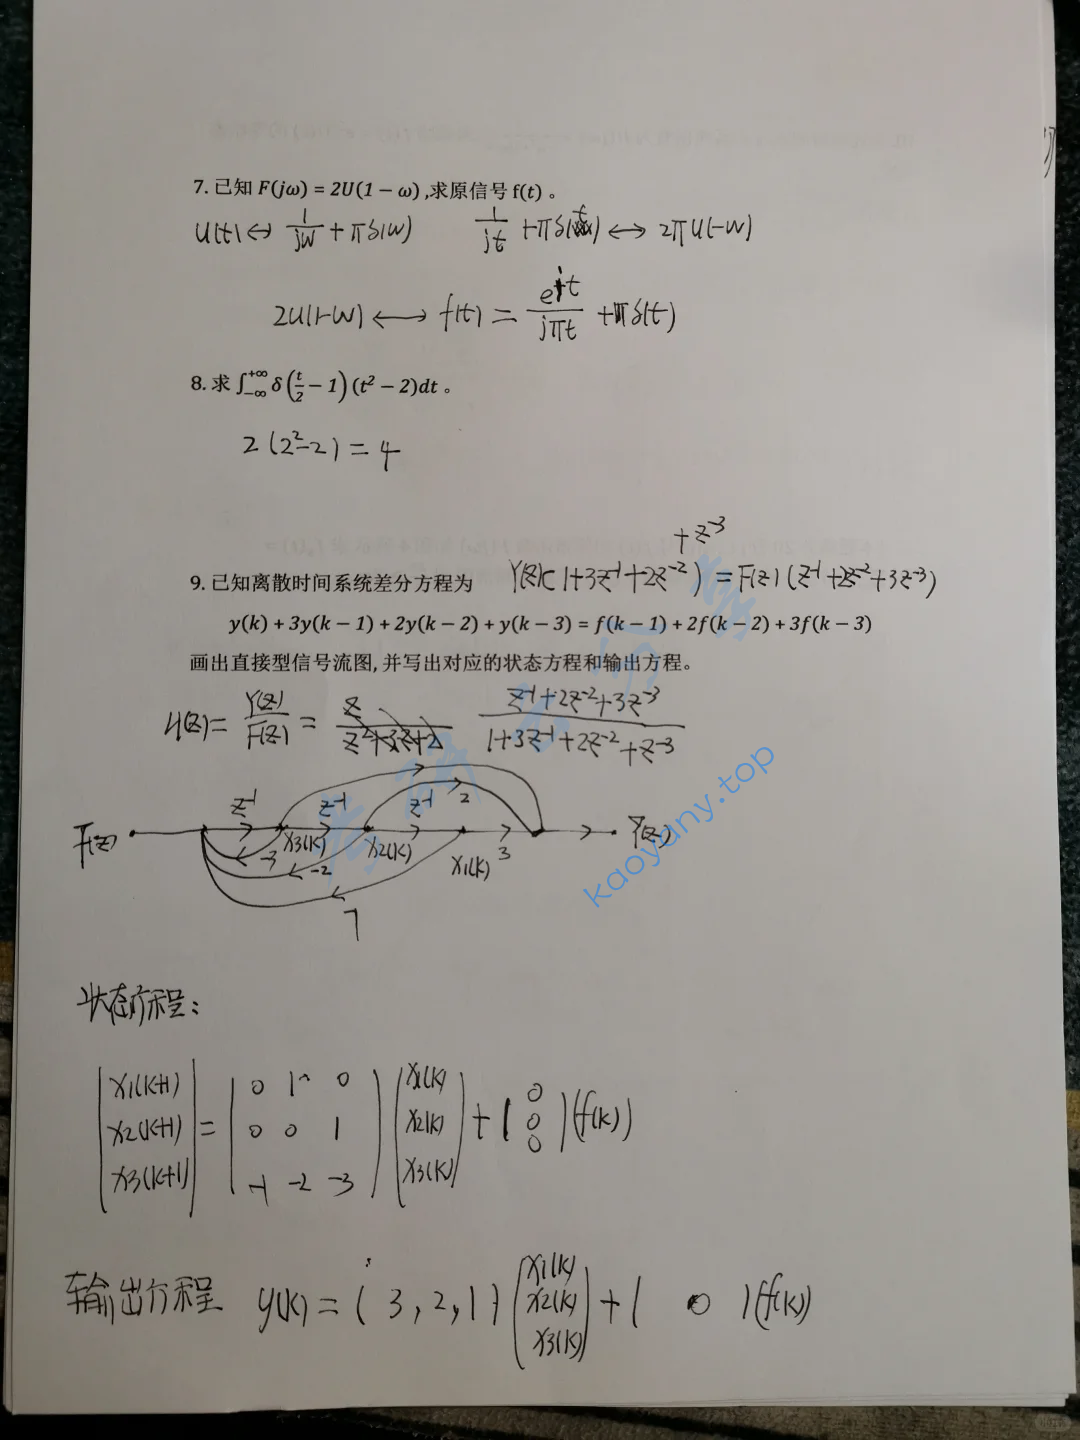 7. 已知 F(jω) = 2U(1 − ω) ,求原信号 f(t) 。
U(t) ↔ 1/jw + πδ(w)    1/jt + πδ(t) ↔ 2πU(-w)
2U(1-w) ↔ f(t) = e^{jt}/jπt + πδ(t)
8. 求 ∫_{−∞}^{+∞} δ(t/2 − 1)(t² − 2)dt 。
2(2²-2) = 4
+z⁻³
9. 已知离散时间系统差分方程为    Y(z)(1+3z⁻¹+2z⁻²) = F(z)(z⁻¹+2z⁻²+3z⁻³)
y(k) + 3y(k − 1) + 2y(k − 2) + y(k − 3) = f(k − 1) + 2f(k − 2) + 3f(k − 3)
画出直接型信号流图, 并写出对应的状态方程和输出方程。
H(z) = Y(z)/F(z) = (z⁻¹+2z⁻²+3z⁻³)/(1+3z⁻¹+2z⁻²+z⁻³)
z⁻¹ z⁻¹ z⁻¹ 2
F(z) -3 x3(k) -2 x2(k) x1(k) 3 Y(z)
-1
kaoyany.top
状态方程:
x1(k+1) 0 1 0 x1(k) 0
x2(k+1) = 0 0 1 x2(k) + 0 (f(k))
x3(k+1) -1 -2 -3 x3(k) 0
输出方程 y(k) = (3, 2, 1) (x1(k) x2(k) x3(k)) + ( 0 )(f(k))